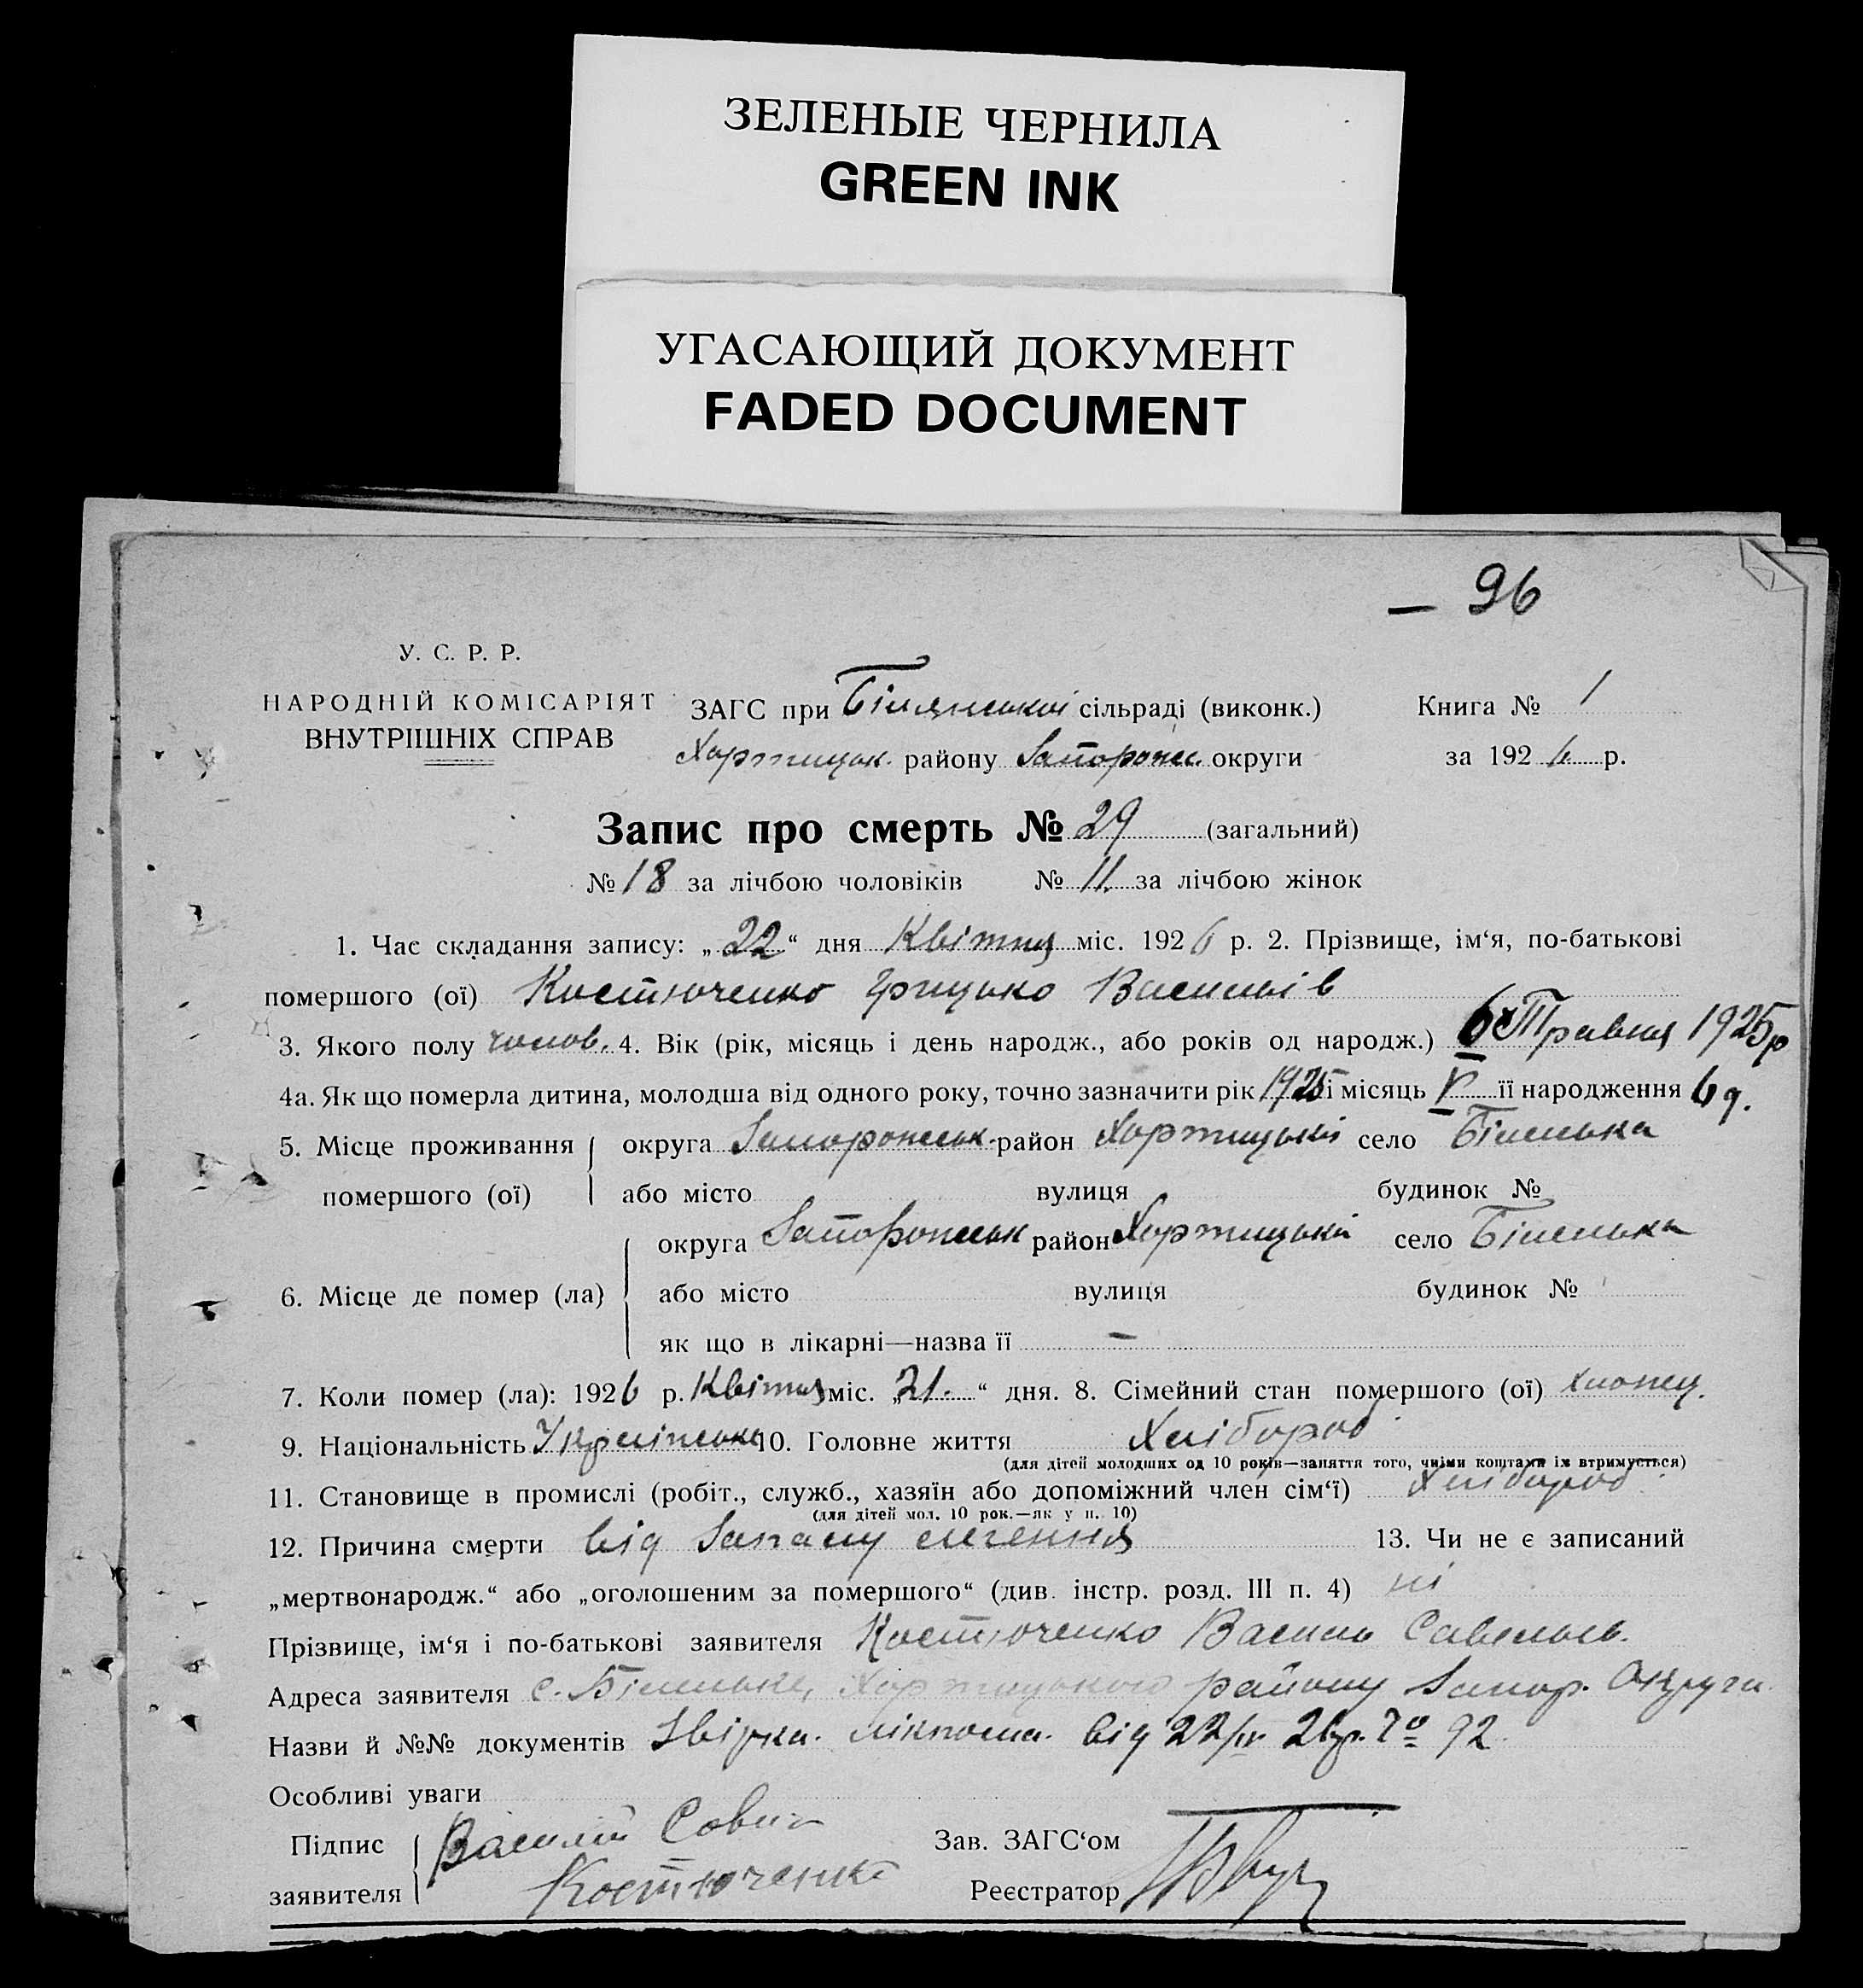 ЗЕЛЕНЫЕ ЧЕРНИЛА
GREEN INK
УГАСАЮЩИЙ ДОКУМЕНТ
FADED DOCUMENT
— 96
У. С. Р. Р.
НАРОДНІЙ КОМІСАРІЯТ
ВНУТРІШНІХ СПРАВ
ЗАГС при Білянській сільраді (виконк.)
Хортицьк. району Запорожс. округи
Книга № 1
за 1926 р.
Запис про смерть № 29 (загальний)
№ 18 за лічбою чоловіків № 11. за лічбою жінок
1. Час складання запису: „22“ дня Квітня міс. 1926 р. 2. Прізвище, ім‘я, по-батькові
помершого (ої) Костюченко Грицько Васильів
3. Якого полу чолов. 4. Вік (рік, місяць і день народж., або років од народж.) 6 Травня 1925р
4а. Як що померла дитина, молодша від одного року, точно зазначити рік 1925 і місяць V її народження 6 д.
5. Місце проживання округа Запорожськ. район Хортицькій село Біленька
помершого (ої) або місто вулиця будинок №
округа Запорожськ район Хортицькій село Біленька
6. Місце де помер (ла) або місто вулиця будинок №
як що в лікарні—назва її —
7. Коли помер (ла): 1926 р. Квітня міс. „21.“ дня. 8. Сімейний стан помершого (ої) хлопец.
9. Національність Українська 10. Головне життя Хлібороб
(для дітей молодших од 10 років—заняття того, чиїми коштами їх втримується)
11. Становище в промислі (робіт., служб., хазяїн або допоміжний член сім‘ї) Хлібороб
(для дітей мол. 10 рок.—як у п. 10)
12. Причина смерти від Запалу легення 13. Чи не є записаний
„мертвонародж.“ або „оголошеним за помершого“ (див. інстр. розд. III п. 4) ні
Прізвище, ім‘я і по-батькові заявителя Костюченко Василь Савельев.
Адреса заявителя с. Біленьке, Хортицького району Запор. Округи
Назви й №№ документів від 22/IV 26р. 92.
Особливі уваги
Підпис Василій
заявителя Костюченко
Зав. ЗАГС‘ом
Реєстратор